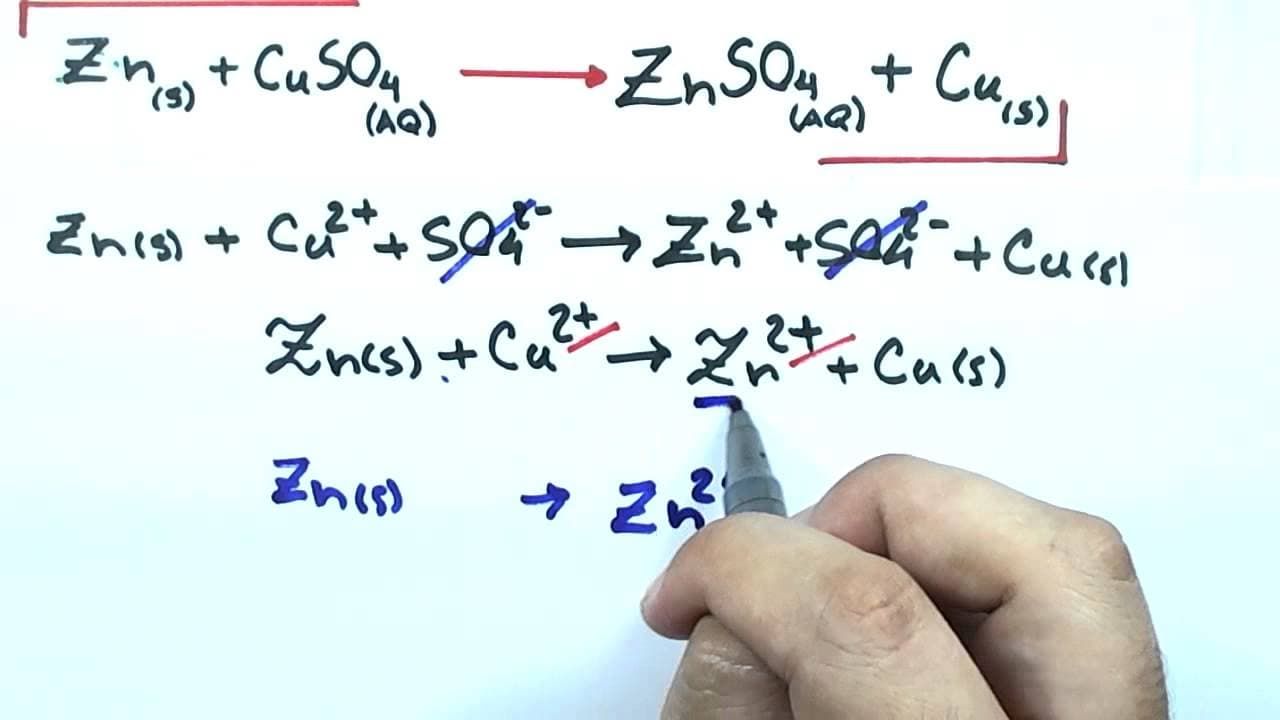 Zn(s) + CuSO₄(AQ) → ZnSO₄(AQ) + Cu(s)
Zn(s) + Cu²⁺ + SO₄²⁻ → Zn²⁺ + SO₄²⁻ + Cu(s)
Zn(s) + Cu²⁺ → Zn²⁺ + Cu(s)
Zn(s) → Zn²